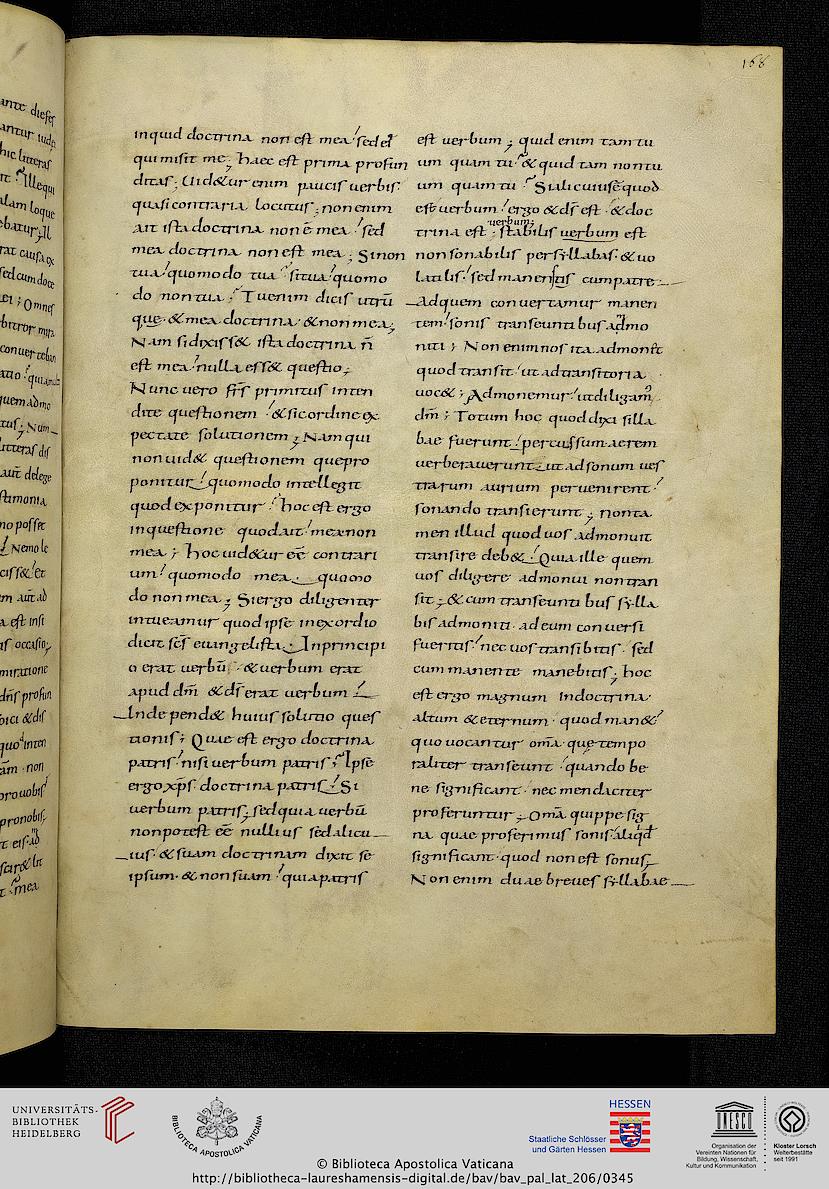 168
inquid doctrina non est mea sed eī
qui misit me; haec est prima profun
ditas; Uid&ur enim paucis verbis
quasi contraria locutus; non enim
ait ista doctrina non ē mea sed
mea doctrina non est mea; Si non
tua quomodo tua situa quomo
do non tua; Tu enim dicis utrū
que & mea doctrina & non mea;
Nam si dixiss& ista doctrina n̄
est mea nulla ess& questio;
Nunc vero fr̄s primitus inten
dite questionem & sic ordine ex
pectate solutionem; Nam qui
non uid& questionem que pro
ponitur quomodo intellegit
quod exponitur hoc est ergo
in questione quod ait mea non
mea; hoc uid&ur eē contrari
um quomodo mea quomo
do non mea; Si ergo diligenter
intueamur quod ipse in exordio
dicit sc̄s evangelista; In principi
o erat verbū & verbum erat
apud dm̄ & ds̄ erat verbum
Inde pend& huius solutio ques
tionis; Quae est ergo doctrina
patris nisi verbum patris; Ipse
ergo xp̄s doctrina patris Si
verbum patris; sed quia verbū
non potest eē nullius sed alicu
ius & suam doctrinam dixit se
ipsum & non suam quia patris
est verbum; quid enim tam tu
um quam tu & quid tam non tu
um quam tu Si alicuius ē quod
es ē verbum ergo & ds̄ est & doc
verbum;
trina est; stabilis verbum est
non sonabilis per syllabas & uo
latilis sed manentis cum patre
Ad quem convertamur manen
tem sonis transeuntibus admo
niti; Non enim nos ita admonet
quod transit ut ad transitoria
uoc&; Admonemur ut diligam̄
dm̄; Totum hoc quod dixi silla
bae fuerunt percussum aerem
verberaverunt ut ad sonum ves
trarum aurium pervenirent
sonando transierunt; non ta
men illud quod uos admonuit
transire deb& Quia ille quem
uos diligere admonui non tran
sit; & cum transeuntibus sylla
bis admoniti ad eum conversi
fueritis nec vos transibitis sed
cum manente manebitis; hoc
est ergo magnum in doctrina
altum & eternum quod man&
quo vocantur om̄a que tempo
raliter transeunt quando be
ne significant nec mendaciter
proferuntur; Om̄a quippe sig
na quae proferimus sonis aliqd̄
significant quod non est sonus;
Non enim duae breves syllabae
UNIVERSITÄTS-
BIBLIOTHEK
HEIDELBERG
BIBLIOTECA APOSTOLICA VATICANA
HESSEN
Staatliche Schlösser
und Gärten Hessen
UNESCO
Organisation der
Vereinten Nationen für
Bildung, Wissenschaft,
Kultur und Kommunikation
Kloster Lorsch
Welterbestätte
seit 1991
© Biblioteca Apostolica Vaticana
http://bibliotheca-laureshamensis-digital.de/bav/bav_pal_lat_206/0345